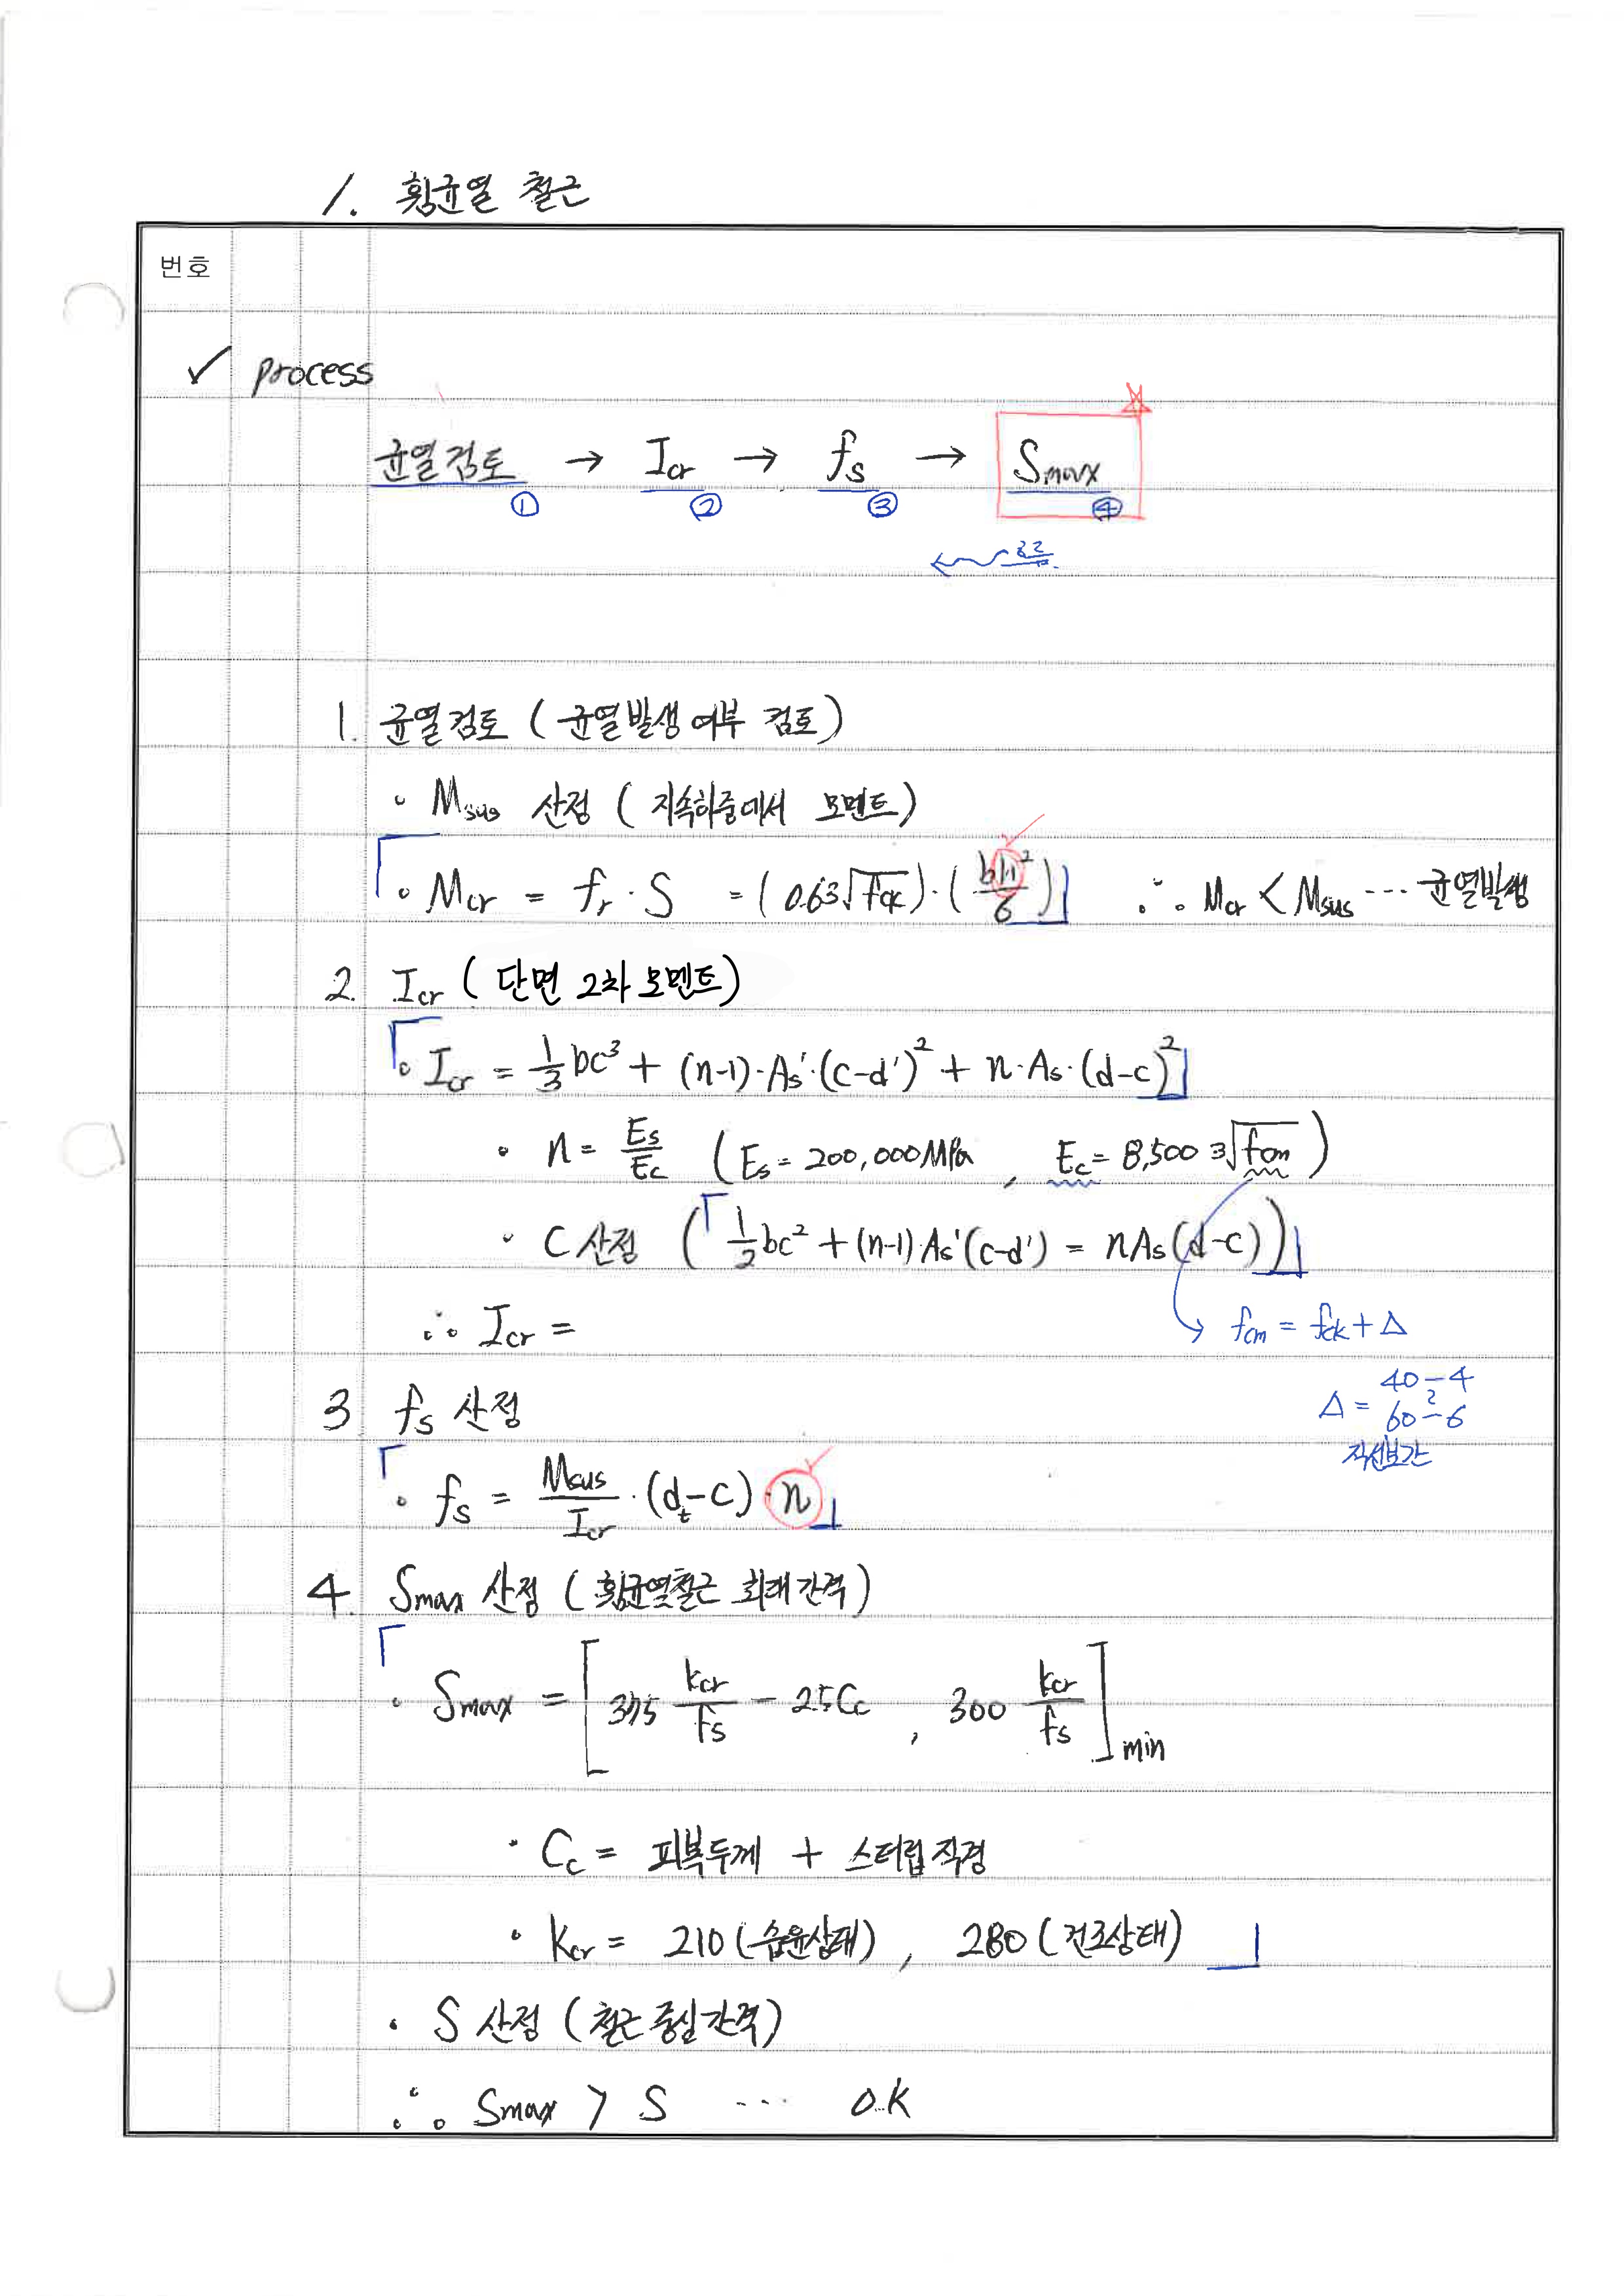 1. 휨균열 철근
번호
✓ process
균열검토 → Icr → fs → Smax
① ② ③ ④
1. 균열검토 (균열발생 여부 검토)
• Msus 산정 (지속하중에서 모멘트)
• Mcr = fr · S = (0.63√fck) · (bh²/6) ∴ Mcr < Msus ··· 균열발생
2. Icr (단면 2차 모멘트)
• Icr = 1/3 bc³ + (n-1)·As'·(c-d')² + n·As·(d-c)²
• n = Es/Ec (Es = 200,000MPa, Ec = 8,500 ³√fcm)
• C 산정 (1/2 bc² + (n-1)·As'(c-d') = nAs(d-c))
∴ Icr =
fcm = fck + Δ
40-4
Δ = ?
60-6
직선보간
3 fs 산정
• fs = Msus/Icr · (dt-c) · n
4. Smax 산정 (휨균열철근 최대간격)
• Smax = [375 kcr/fs - 2.5Cc , 300 kcr/fs]min
• Cc = 피복두께 + 스터럽직경
• kcr = 210 (습윤상태) , 280 (건조상태)
• S 산정 (철근 중심간격)
∴ Smax > S ··· O.K